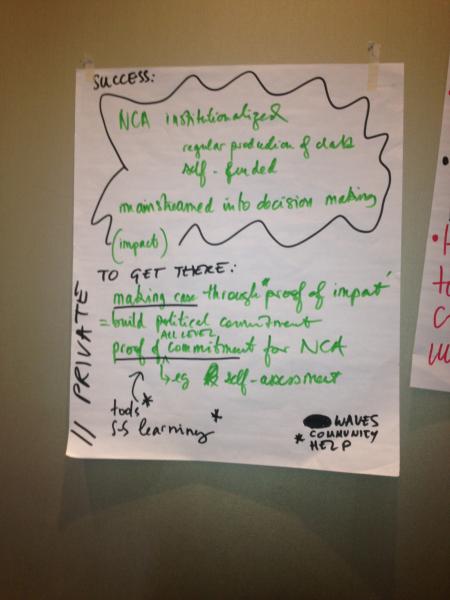 SUCCESS:
NCA institutionalized
regular production of data
self-funded
mainstreamed into decision making
(impact)
TO GET THERE:
making case through "proof of impact"
= build political commitment
ALL LEVEL
proof of commitment for NCA
eg self-assessment
tools *
S-S learning *
// PRIVATE
WAVES
* COMMUNITY
HELP